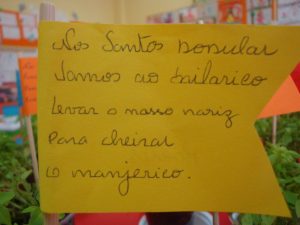 Nos Santos popular
Vamos ao bailarico
Levar o nosso nariz
Para cheirar
o manjerico.